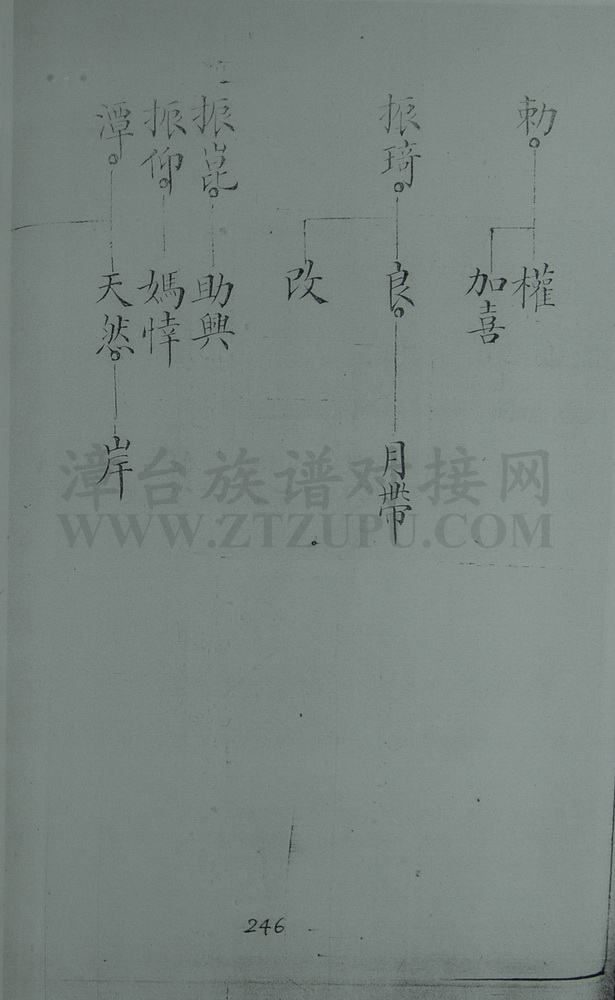 勅
權
加喜
振琦
良
改
月帶
振崑
助興
振仰
媽悻
潭
天然
岸
漳台族谱对接网
WWW.ZTZUPU.COM
246